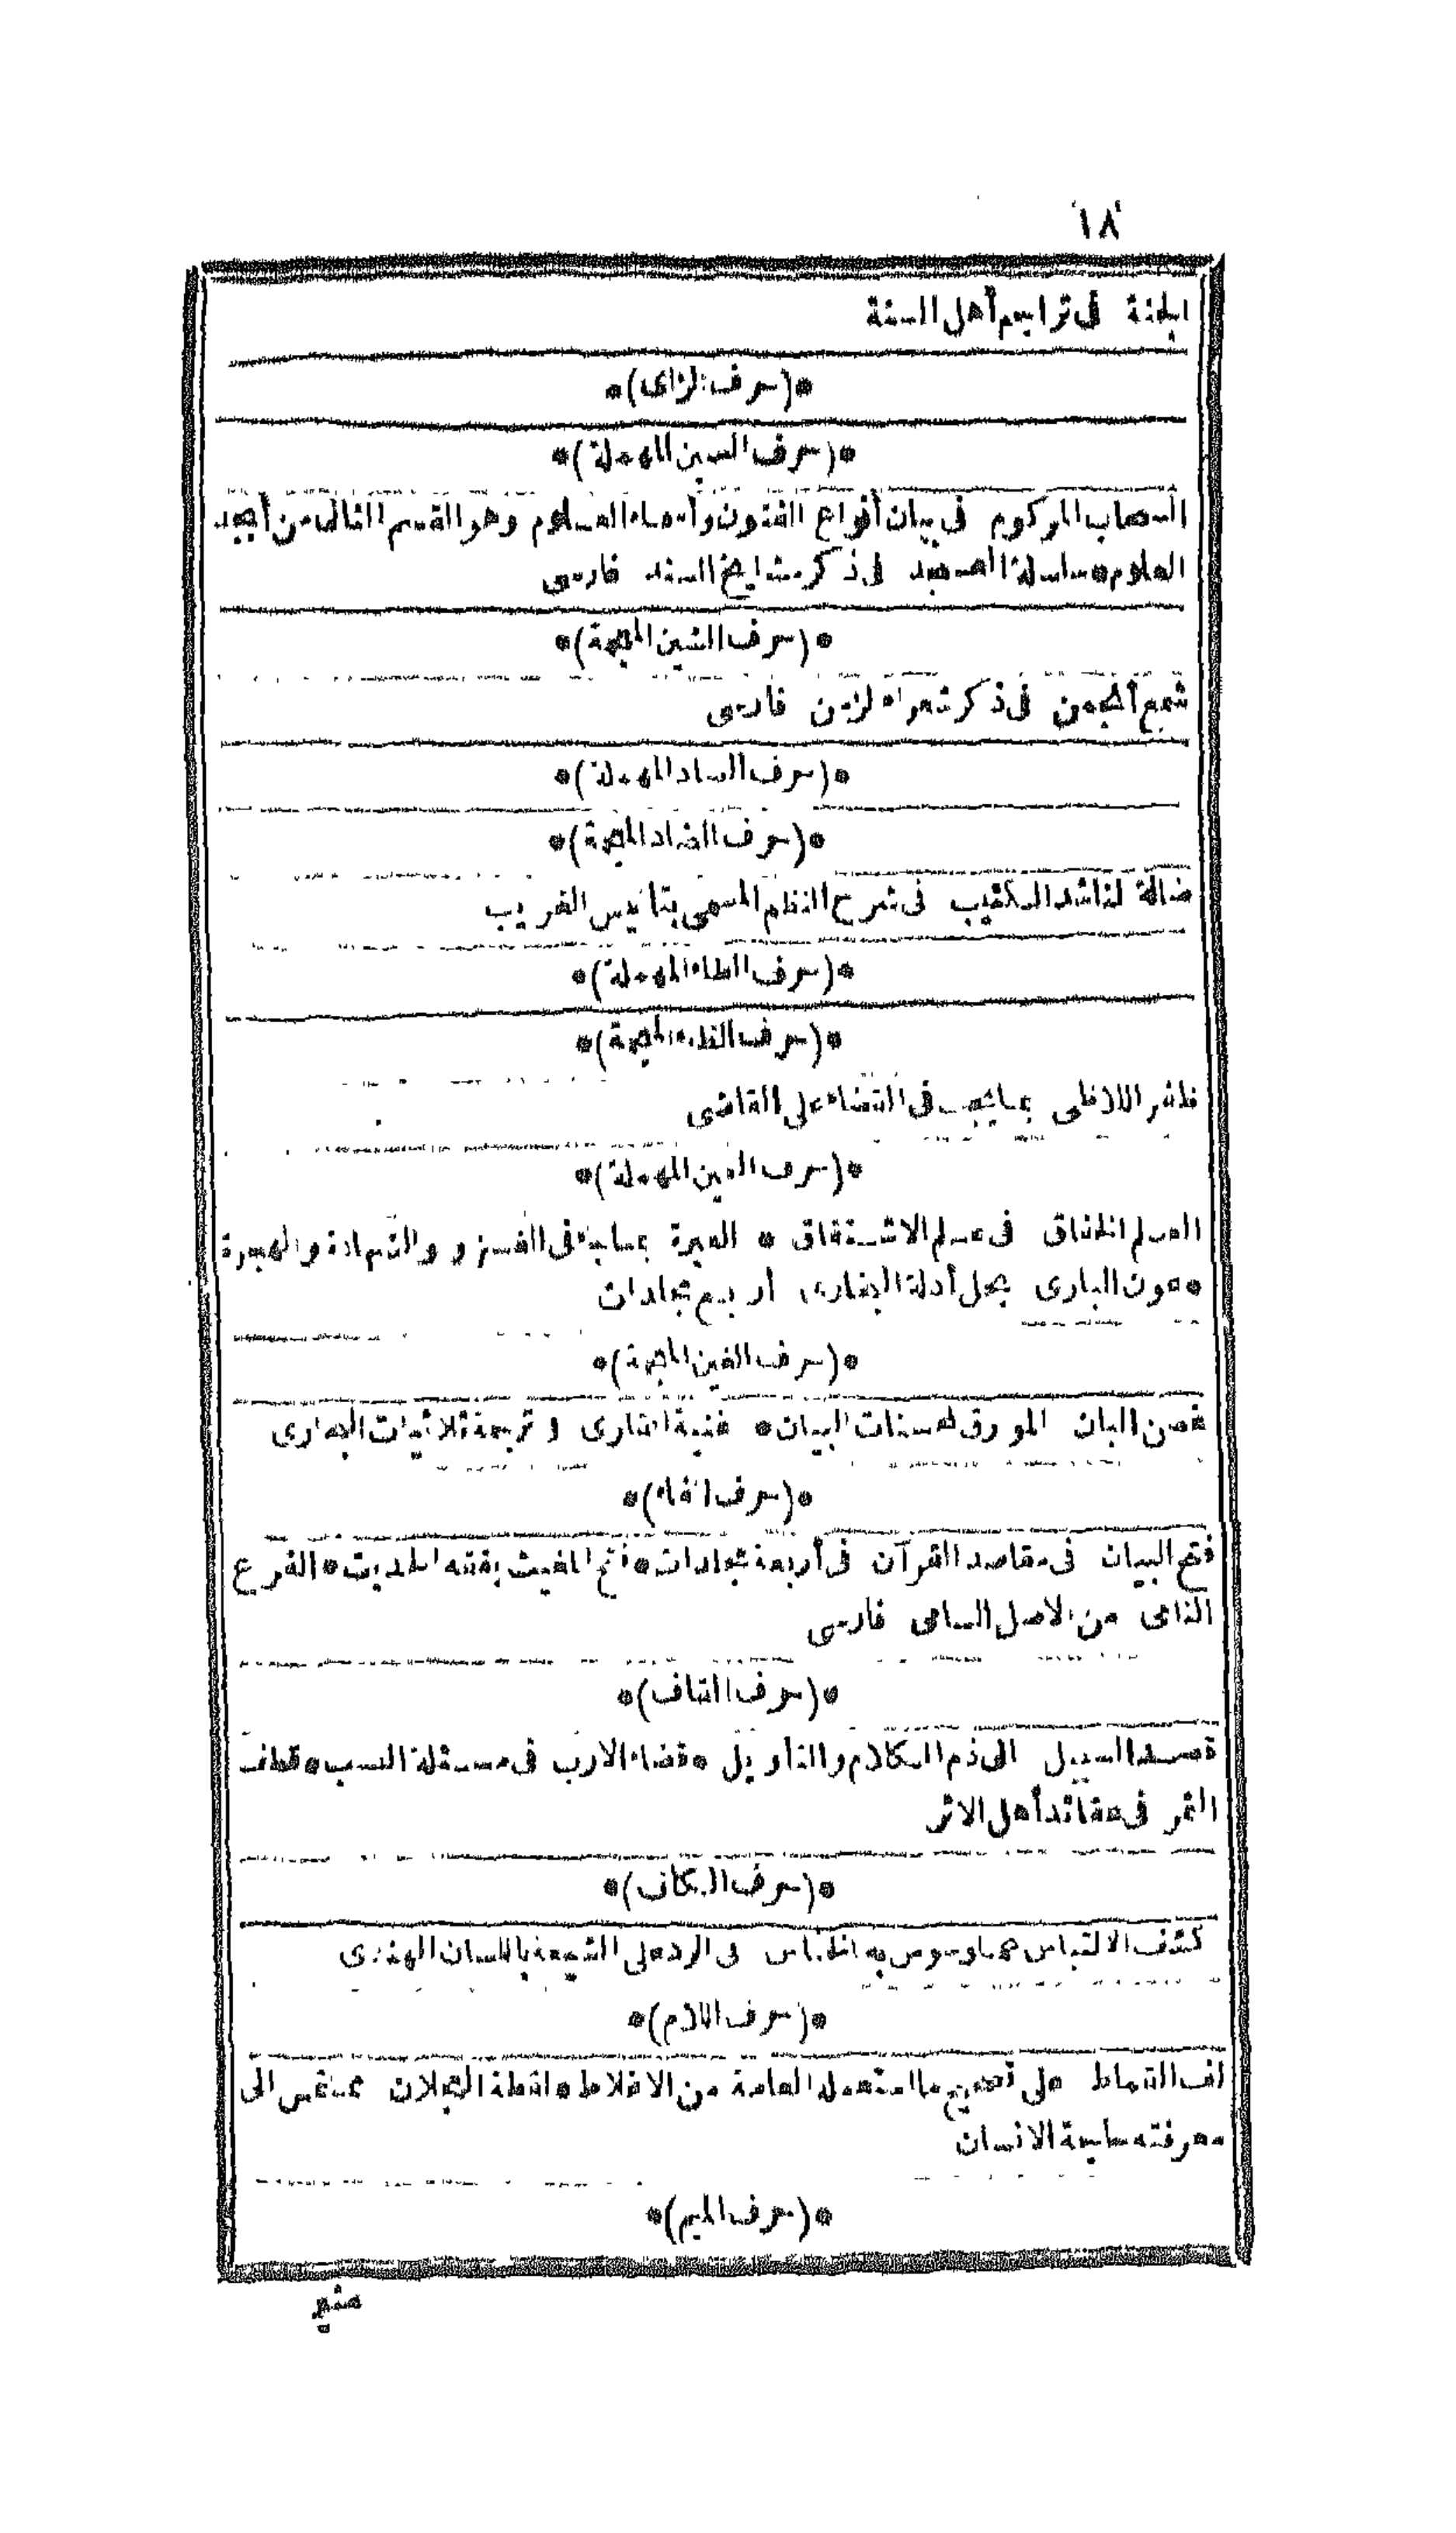 ١٨
الجنة فى تراجم أهل السنة
*(حرف الزاى)*
*(حرف السين المهملة)*
السحاب المركوم فى بيان أنواع الفنون وأسماء العلوم وهو القسم الثانى من أبجد
العلوم * سلسلة العسجد فى ذكر مشايخ السند فارسى
*(حرف الشين المعجمة)*
شمع أنجمن فى ذكر شعراء لزمن فارسى
*(حرف الصاد المهملة)*
*(حرف الضاد المعجمة)*
ضالة لناشد الكئيب فى شرح النظم المسمى بتأنيس الغريب
*(حرف الطاء المهملة)*
*(حرف الظاء المعجمة)*
ظفر اللاظى بما يجب فى القضاء على القاضى
*(حرف العين المهملة)*
العلم الخفاق فى علم الاشتقاق * العبرة بما جاء فى الغزو والشهادة والهجرة
* عون البارى بحل أدلة البخارى أربع مجلدات
*(حرف الغين المعجمة)*
غصن البان المورق لمحسنات البيان * غنية القارى و ترجمة ثلاثيات البخارى
*(حرف الفاء)*
فتح البيان فى مقاصد القرآن فى أربعة مجلدات * فتح المغيث بفقه الحديث * الفرع
النامى من الاصل السامى فارسى
*(حرف القاف)*
قصد السبيل الى ذم الكلام والتأويل * قضاء الارب فى مسئلة النسب * قطف
الثمر فى عقائد أهل الاثر
*(حرف الكاف)*
كشف الالتباس عما وسوس به الخناس فى الرد على الشيعة باللسان الهندى
*(حرف اللام)*
لف القماط على تصحيح ما استعمله العامة من الاغلاط * لقطة العجلان مما تمس الى
معرفته حاجة الانسان
*(حرف الميم)*
مثير